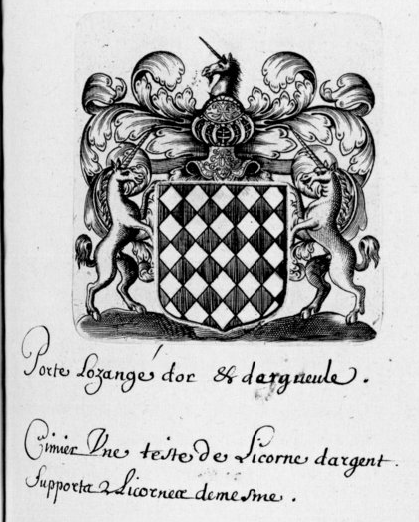 Porte Lozangé dor & dargueule.
Cimier Une teste de Licorne dargent.
Supporta 2 Licornea demesme.